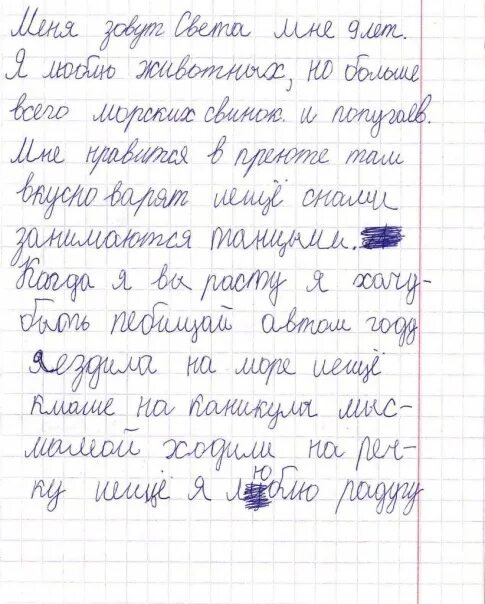 Меня зовут Света мне 9 лет.
Я люблю животных, но больше
всего морских свинок. и попугаев.
Мне нравится в преюте там
вкусно варят иещё снами
занимаются танцыми.
Когда я вы расту я хочу-
быть пебицай а в том году
я ездила на море иещё
кмаше на каникулы мыс-
мамой ходили на реч-
ку иещё я люблю радугу